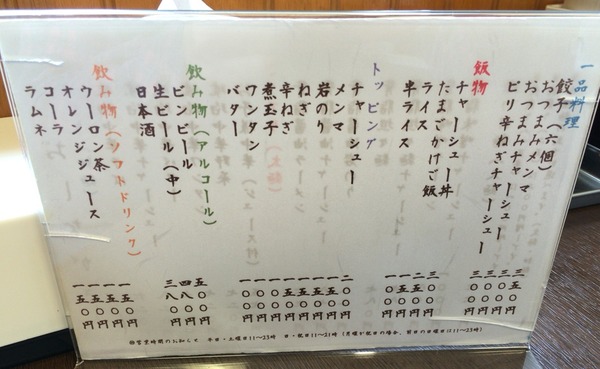 一品料理
餃子（六個） 三五〇円
おつまみメンマ 三〇〇円
おつまみチャーシュー 三〇〇円
ピリ辛ねぎチャーシュー 三〇〇円
飯物
チャーシュー丼 三〇〇円
たまごかけご飯
ライス
半ライス
トッピング
チャーシュー 二〇〇円
メンマ 一五〇円
岩のり 一五〇円
ねぎ
辛ねぎ
煮玉子 一〇〇円
ワンタン 一〇〇円
バター 一〇〇円
飲み物（アルコール）
ビンビール 五〇〇円
生ビール（中） 四八〇円
日本酒 三八〇円
飲み物（ソフトドリンク）
ウーロン茶 一五〇円
オレンジジュース 一五〇円
コーラ 一五〇円
ラムネ 一五〇円
※営業時間のお知らせ 平日・土曜日11〜23時 日・祝日11〜21時（月曜が祝日の場合、前日の日曜日は11〜23時）